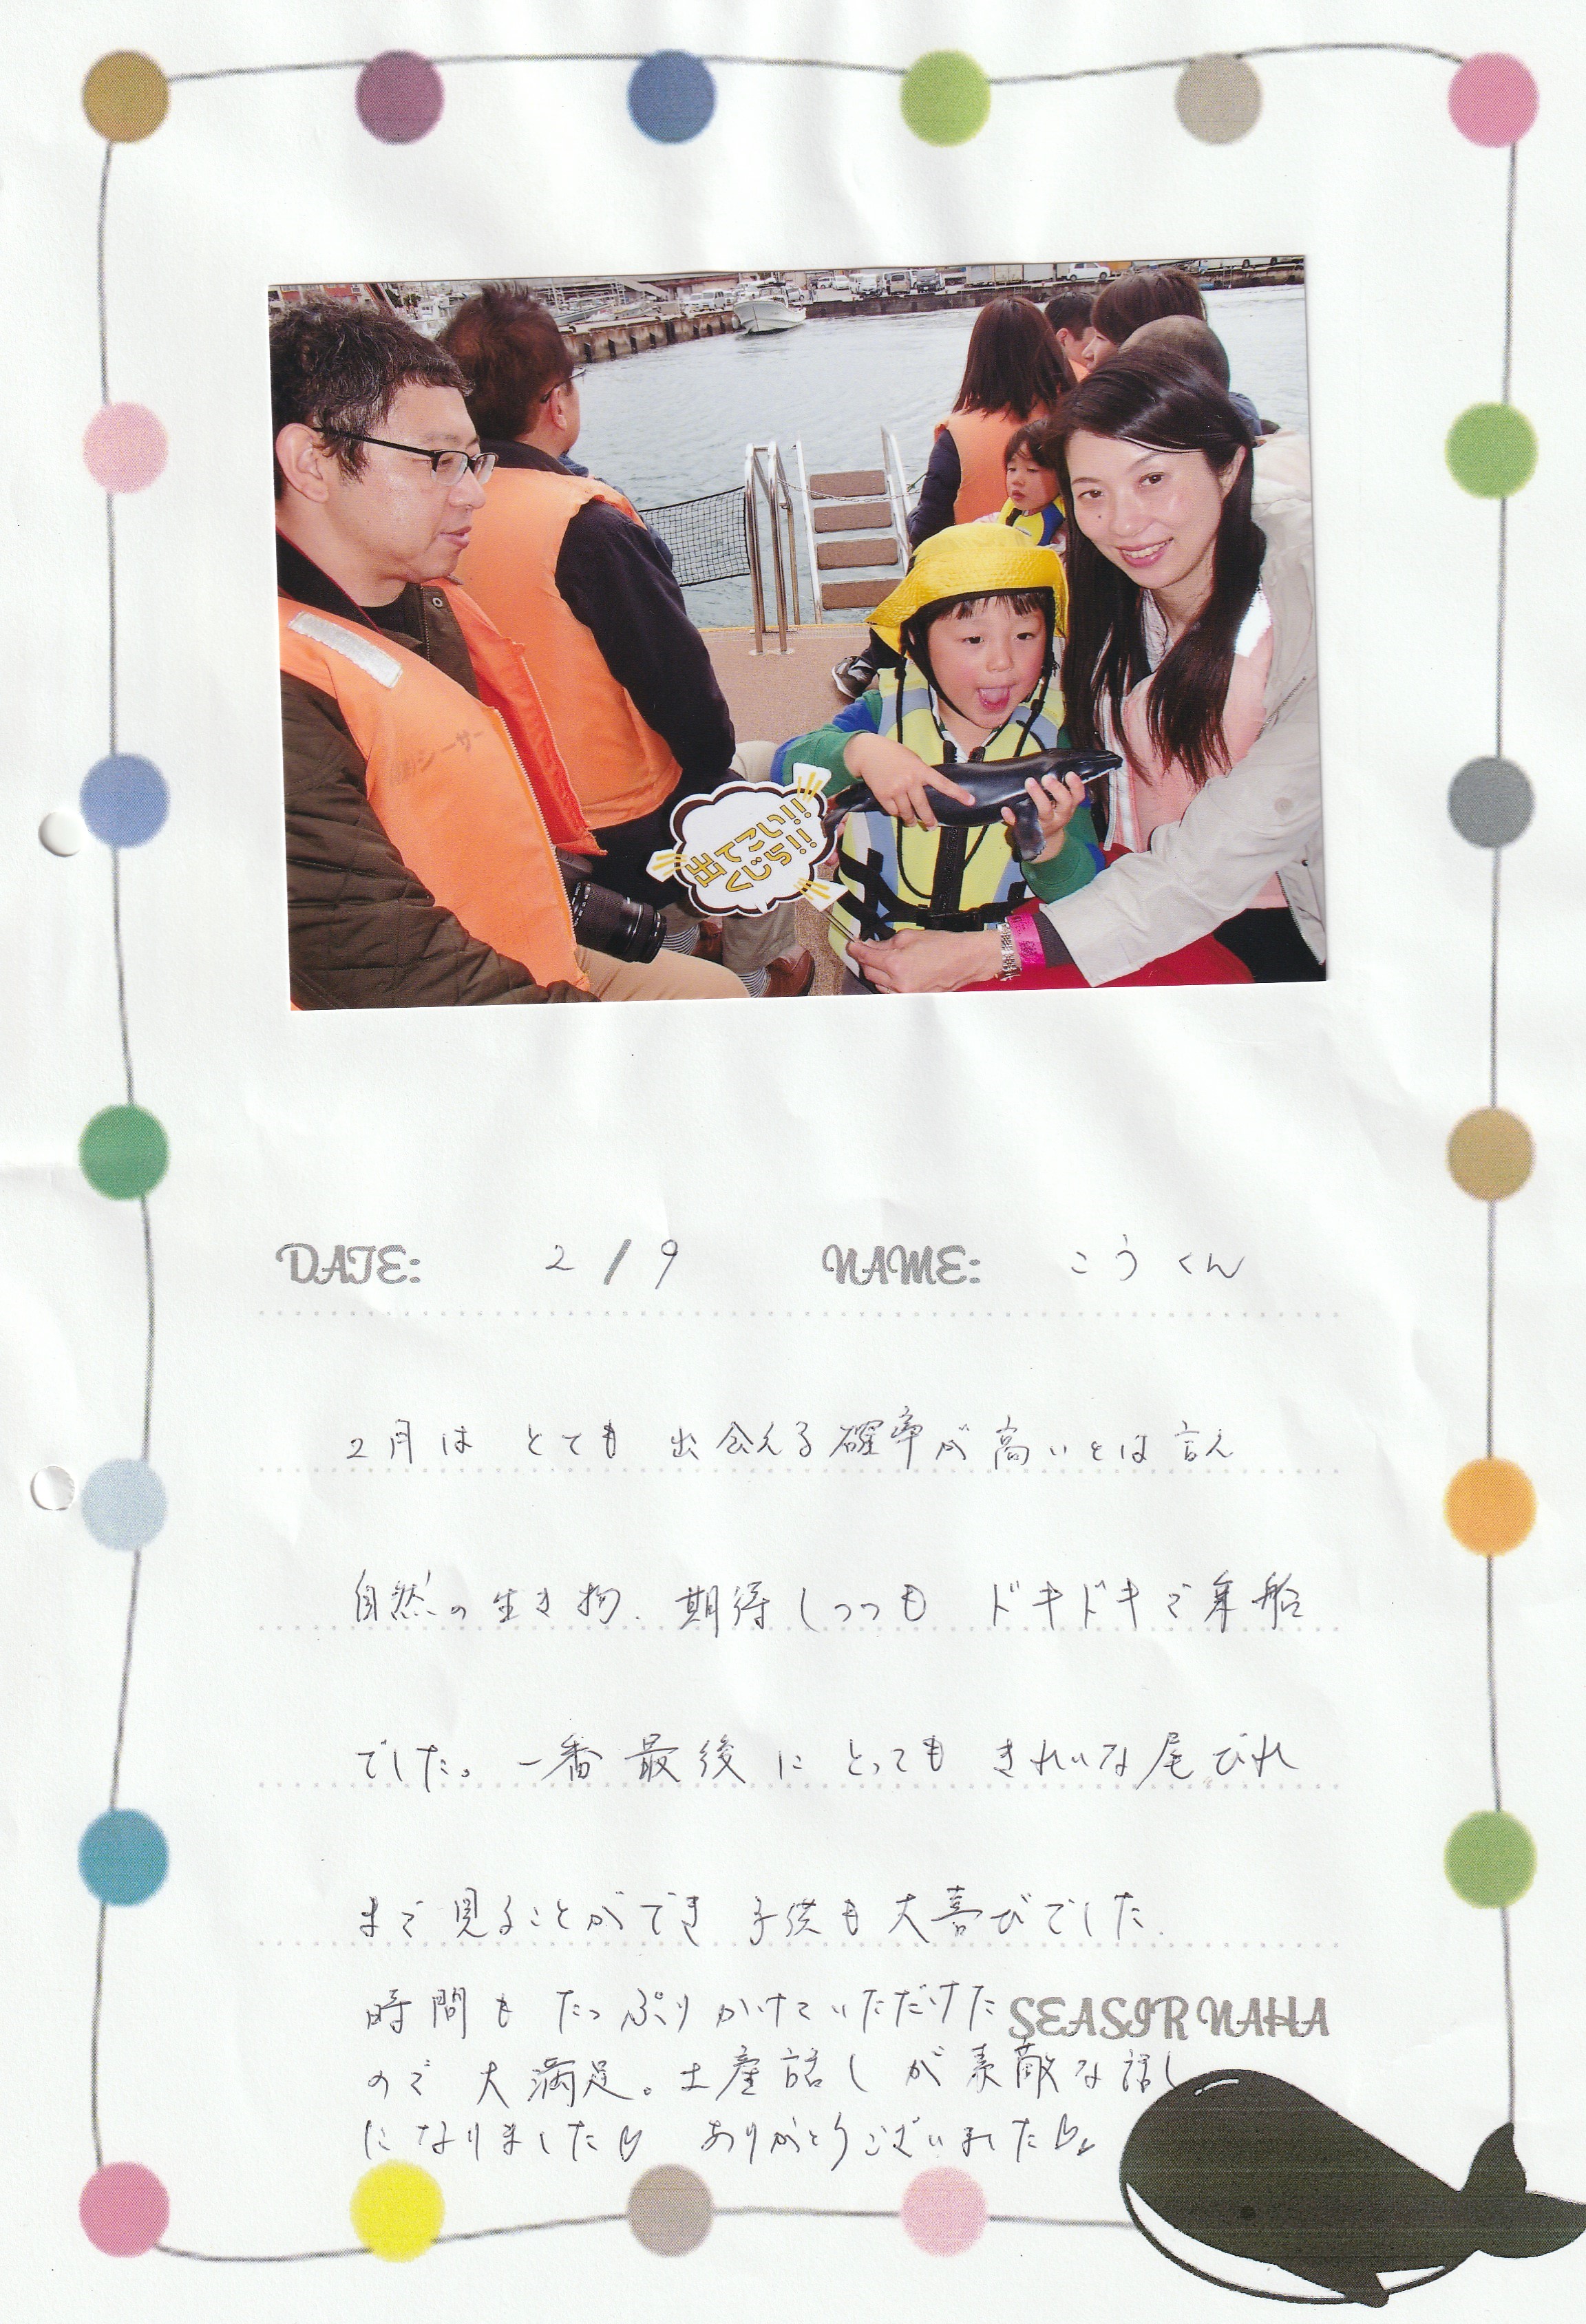 (株)シーサー
出てこい!!!
くじら!!!
DATE: 2/9 NAME: こうくん
2月は とても 出会える確率が高いとは言え
自然の生き物、期待しつつも ドキドキで乗船
でした。一番最後に とっても きれいな尾びれ
まで見ることができ 子供も大喜びでした。
時間も たっぷりかけていただけた
SEASIR NAHA
ので 大満足。土産話しが素敵な話し
になりました♡ ありがとうございました♡